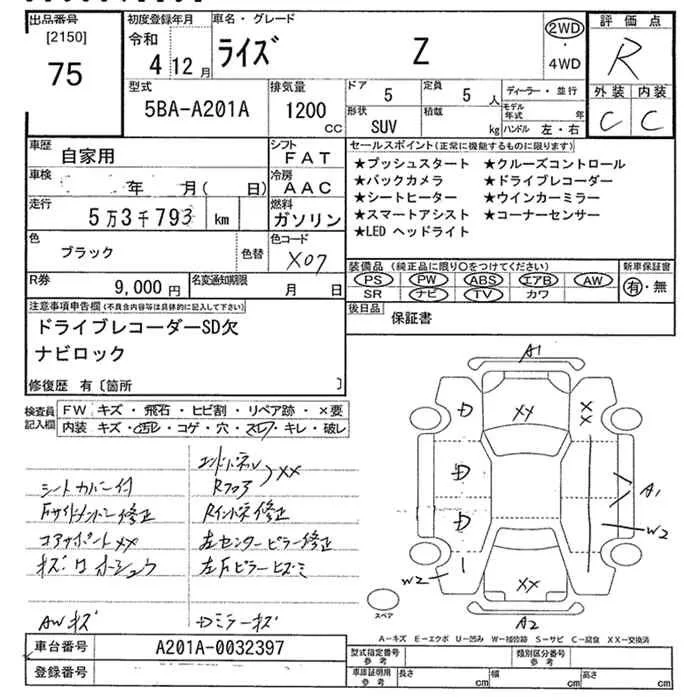 出品番号
[2150]
75
初度登録年月
令和
4 12月
車名・グレード
ライズ Z
2WD
・
4WD
評価点
R
外装 内装
C C
型式
5BA-A201A
排気量
1200
cc
ドア
5
定員
5人
形状
SUV
積載
kg
ディーラー・並行
モデル年式 年
ハンドル 左・右
車歴
自家用
シフト
FAT
車検
年 月( 日)
冷房
AAC
走行
5万3千793 km
燃料
ガソリン
色
ブラック
色替
色コード
X07
R券
9,000円
名変通知期限
月 日
セールスポイント(正常に機能するものに限ります)
★プッシュスタート ★クルーズコントロール
★バックカメラ ★ドライブレコーダー
★シートヒーター ★ウインカーミラー
★スマートアシスト ★コーナーセンサー
★LED ヘッドライト
装備品(純正品に限り○をつけてください)
PS PW ABS エアB AW
SR ナビ TV カワ
新車保証書
有・無
後日品
保証書
注意事項申告欄(不具合内容等は具体的に記入して下さい)
ドライブレコーダーSD欠
ナビロック
修復歴 有〔箇所 〕
検査員
記入欄
FW キズ・飛石・ヒビ割・リペア跡・×要
内装 キズ・凹・コゲ・穴・スレ・キレ・破レ
エンドパネル
Rフロア
XX
シートカバー付
Fサイドメンバー修正
Rインナー修正
コアサポートXX
左センターピラー修正
左Fピラーヒズミ
AWキズ
Dミラーキズ
A1
XX
D
XX
D
D
A1
W2
W2
XX
A2
スペア
A-キズ E-エクボ U-凹み W-補修跡 S-サビ C-腐食 XX-交換済
車台番号
A201A-0032397
登録番号
型式指定番号
参考
類別区分番号
参考
車庫証明用
参考
長さ cm
幅 cm
高さ cm